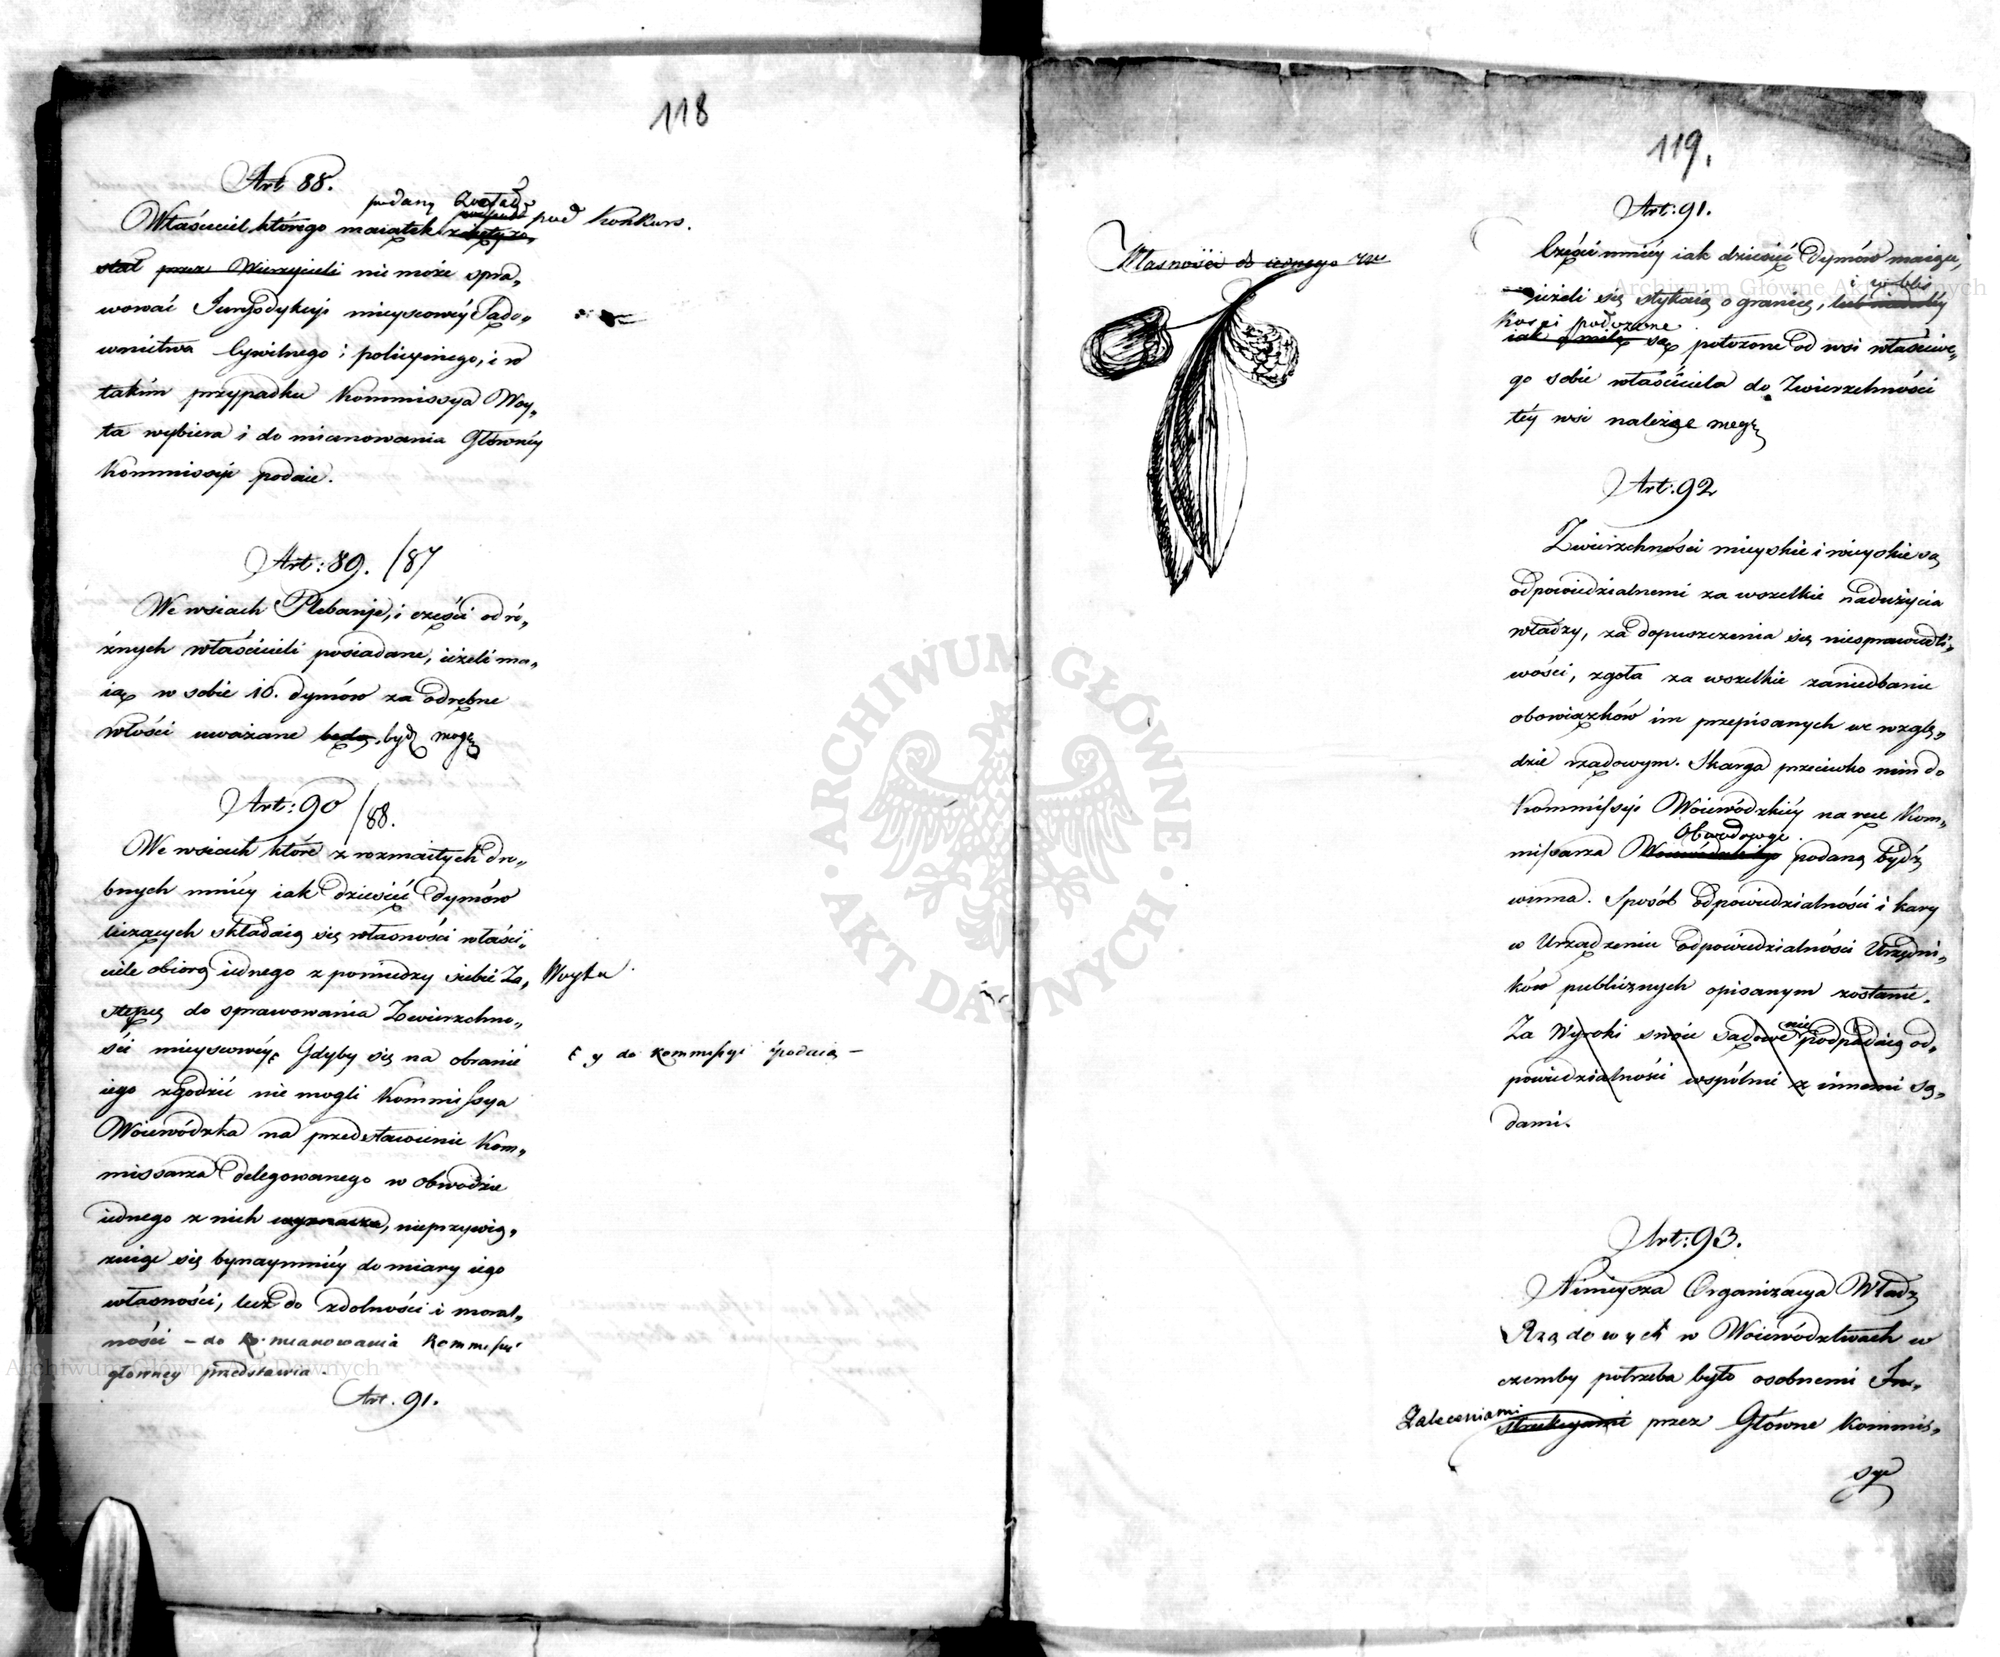 118
Art 88.
podany został
Właściciel, którego maiątek zaięty zo„ pod Konkurs.
stał przez Wierzycieli nie może spra„
wować Juryzdykcyi mieyscowéy Sądo„
wnictwa Cywilnego i policyinego, i w
takim przypadku Kommissya Woy„
ta wybiera i do mianowania Główney
Kommissyi podaie.
Art: 89. /87
We wsiach Plebanje, i części od ró„
żnych właścicieli posiadane, ieżeli ma„
ią w sobie 10. dymów za odrębne
włości uważane będą, bydź mogą
Art: 90 /88.
We wsiach które z rozmaitych dro„
bnych mniéy iak dziesięć dymów
liczących składaią się własności właści„
ciele obiorą iednego z pomiędzy siebie Za„ Woyta
stępcę do sprawowania Zwierzchno„
ści mieyscowéy. Gdyby się na obranie
y do Kommissyi podaią —
iego zgodzić nie mogli Kommissya
Woiewódzka na przedstawienie Kom„
missarza delegowanego w obwodzie
iednego z nich wyznacza, nieprzywią„
zuiąc się bynaymniéy do miary iego
własności, lecz do zdolności i moral„
ności – do mianowania Kommissyi
główney przedstawia.
Art. 91.
119.
Własności do iednego
Art: 91.
Części mniéy iak dziesięć Dymów maiące,
w blis
ieżeli się stykaią o granicę, lub niedaléy
kości położone
iak o milę są położone od wsi właściwe„
go sobie właściciela do Zwierzchności
téy wsi należeć mogą
Art: 92
Zwierzchności mieyskie i wieyskie są
odpowiedzialnemi za wszelkie nadużycia
władzy, za dopuszczenia się niesprawiedli„
wości, zgoła za wszelkie zaniedbanie
obowiązków im przepisanych we wzglę„
dzie rządowym. Skarga przeciwko nim do
Kommissyi Woiewódzkiéy na ręce Kom„
Obwodowego
missarza Woiewódzkiego podana bydź
winna. Sposób odpowiedzialności i kary
w Urządzeniu odpowiedzialności Urzędni„
ków publicznych opisanym zostanie.
nie
Za Wyroki swoie Sądowe podpadaią od„
powiedzialności wspólnie z innemi Są„
dami.
Art: 93.
Ninieysza Organizacya Władz
Rządowych w Woiewództwach w
czemby potrzeba było osobnemi In„
Zaleceniami
strukcyami przez Główne Kommis„
sye
ARCHIWUM GŁÓWNE AKT DAWNYCH
Archiwum Główne Akt Dawnych
Archiwum Główne Akt Dawnych